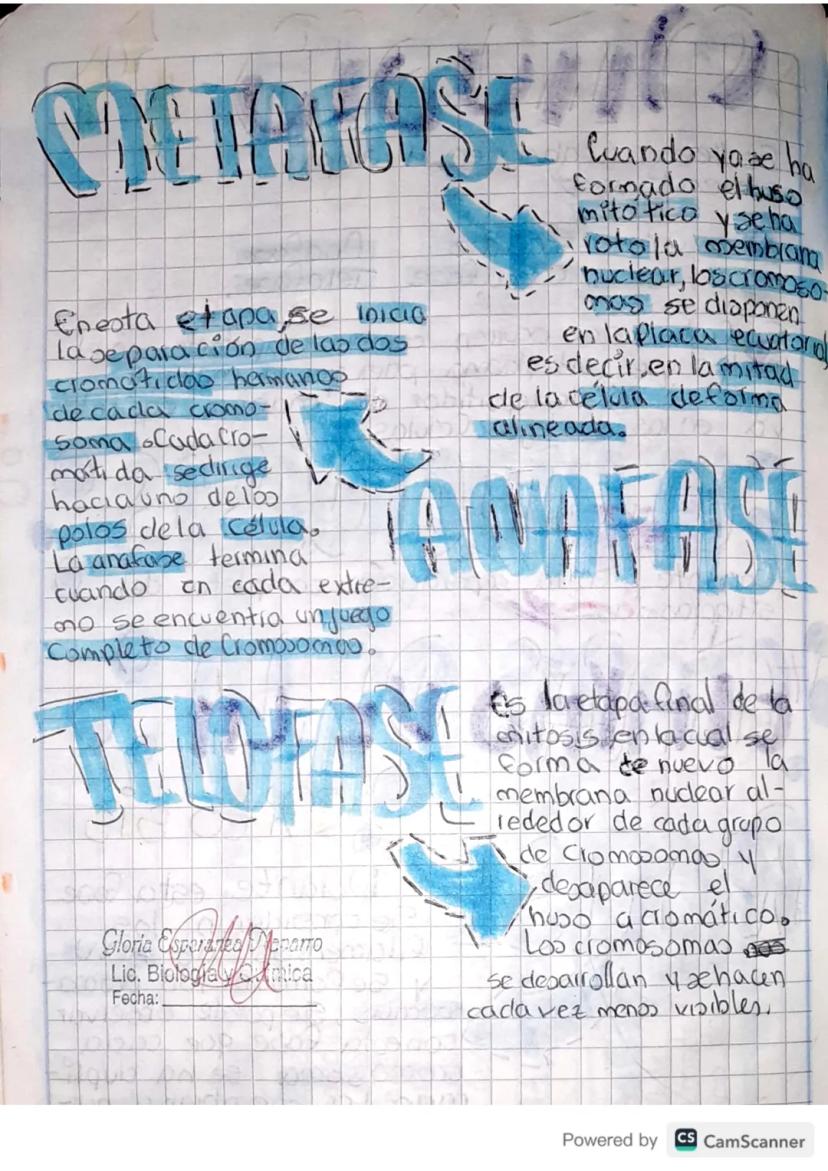 METAFASE
Cuando ya se ha
formado el huso
mitótico y se ha
roto la membrana
nuclear, los cromoso-
mas se disponen
en la placa ecuatorial
es decir, en la mitad
de la célula de forma
alineada.
ANAFASE
En esta etapa, se inicia
la separación de las dos
cromátidas hermanas
de cada cromo-
soma. Cada cro-
mátida se dirige
hacia uno de los
polos de la célula.
La anafase termina
cuando en cada extre-
mo se encuentra un juego
completo de cromosomas.
TELOFASE
Es la etapa final de la
mitosis, en la cual se
forma de nuevo la
membrana nuclear al-
rededor de cada grupo
de cromosomas y
desaparece el
huso acromático.
Los cromosomas
se desarrollan y se hacen
cada vez menos visibles.
Gloria Esperanza
Lic. Biología y Química
Fecha:
Powered by CS CamScanner